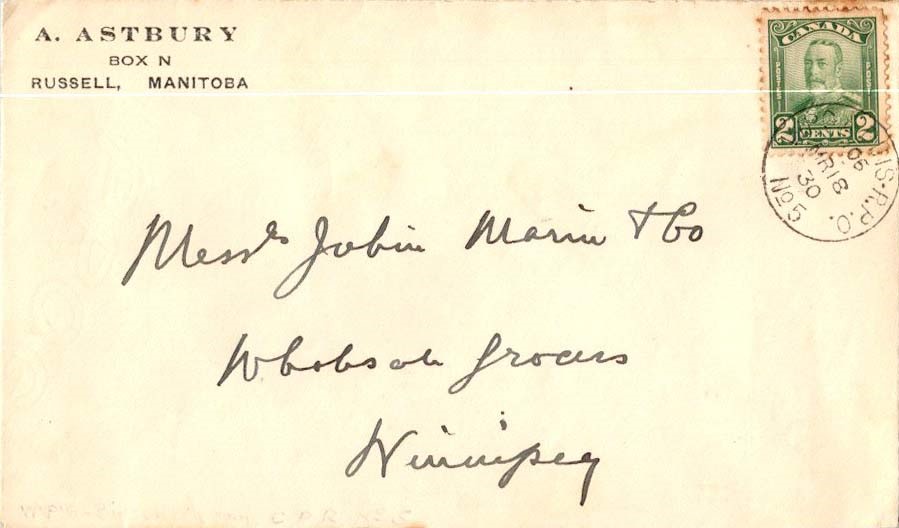 A. ASTBURY
BOX N
RUSSELL, MANITOBA
CANADA
POSTES POSTES
2 CENTS 2
IS. R.P.O.
06
MR 18
30
No 5
Messrs Jobin Marrin & Co
Wholesale Grocers
Winnipeg
C P R No 5